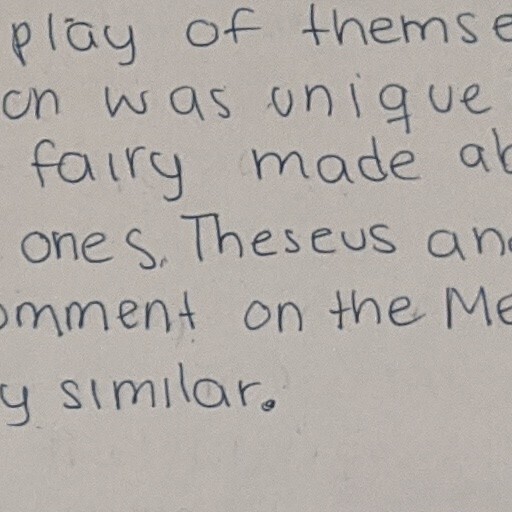 play of themse
on was unique
fairy made ab
ones. Theseus an
omment on the Me
y similar.